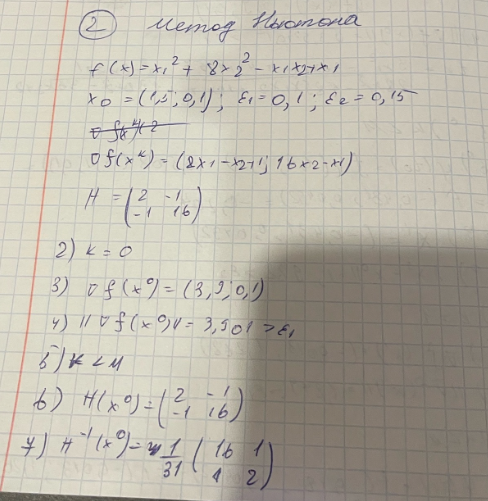 2 Метод Ньютона
f(x) = x₁² + 8x₂² - x₁x₂ + x₁
x₀ = (1,5; 0,1); ε₁ = 0,1; ε₂ = 0,15
∇f(xᵏ) = (2x₁ - x₂ + 1; 16x₂ - x₁)
H = (2 -1
-1 16)
2) k = 0
3) ∇f(x⁰) = (3,9; 0,1)
4) ||∇f(x⁰)|| = 3,901 > ε₁
5) k < M
6) H(x⁰) = (2 -1
-1 16)
7) H⁻¹(x⁰) = 1/31 (16 1
1 2)